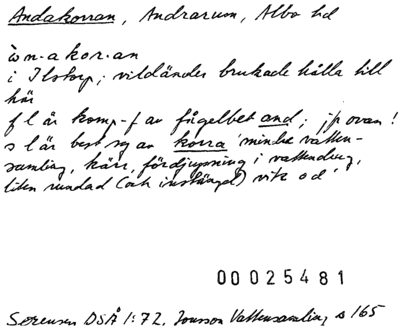 Andakorran, Andrarum, Albo hd
àn·akor·an
i Ilstorp; vildänder brukade hålla till
här
f l är komp-f av fågelbet and; jfr ovan!
s l är best sg av korra 'mindre vatten-
samling, kärr, fördjupning i vattendrag,
liten rundad (och instängd) vik o d'
00025481
Sørensen DSÅ 1:72, Jonsson Vattensamling s 165